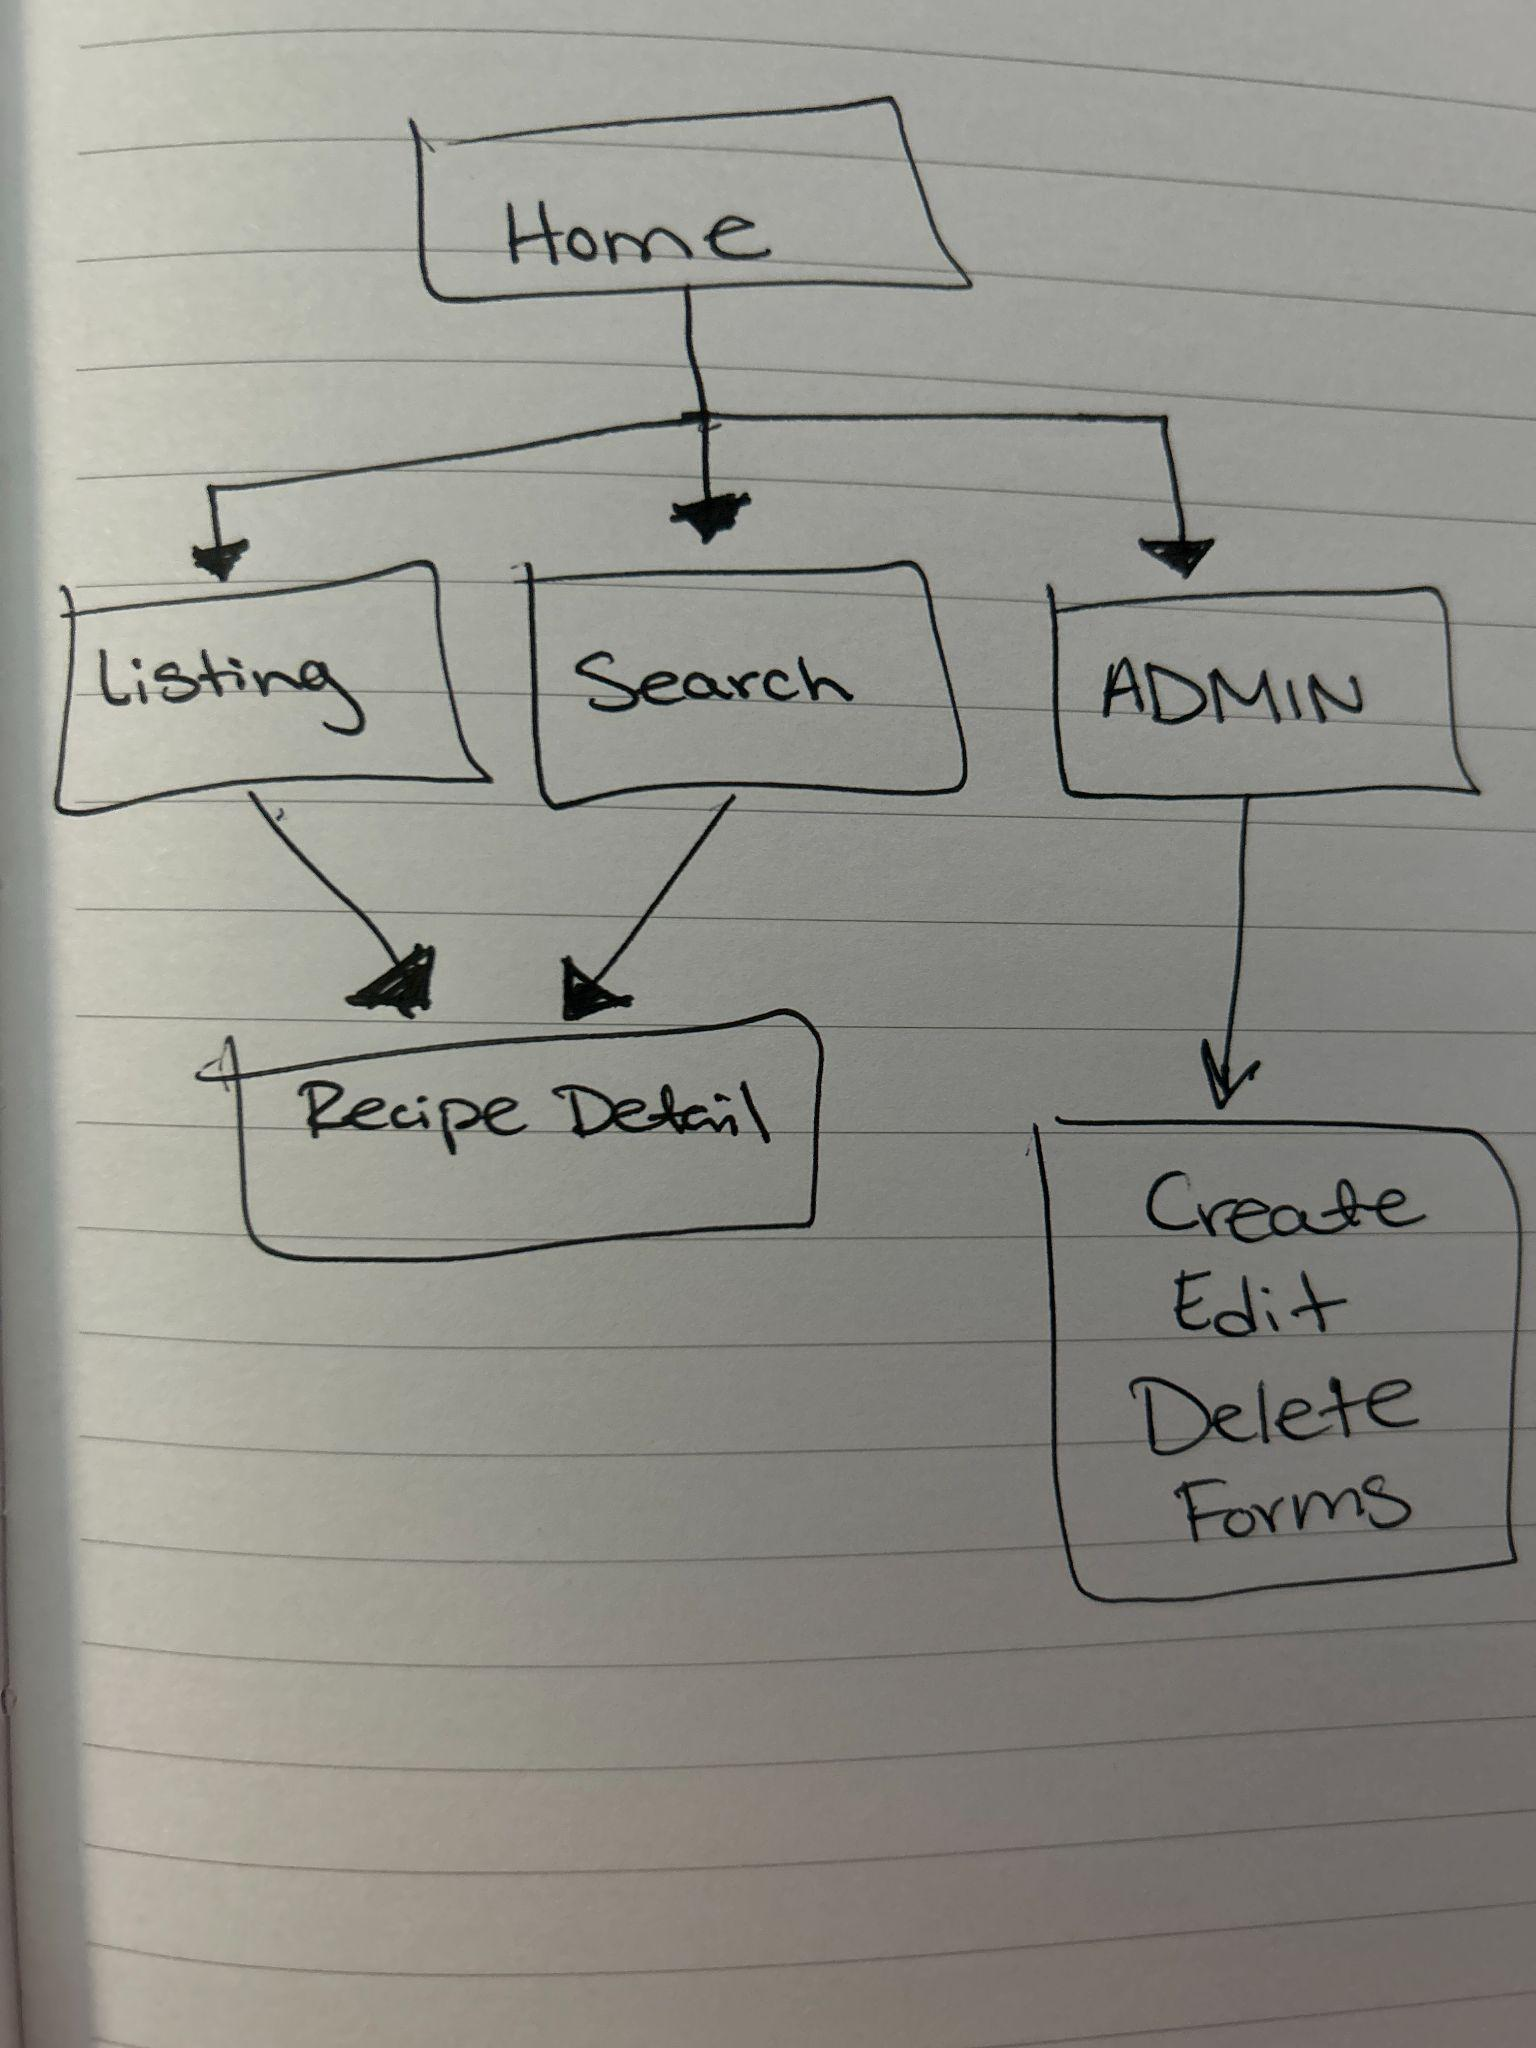 Home
Listing
Search
ADMIN
Recipe Detail
Create
Edit
Delete
Forms